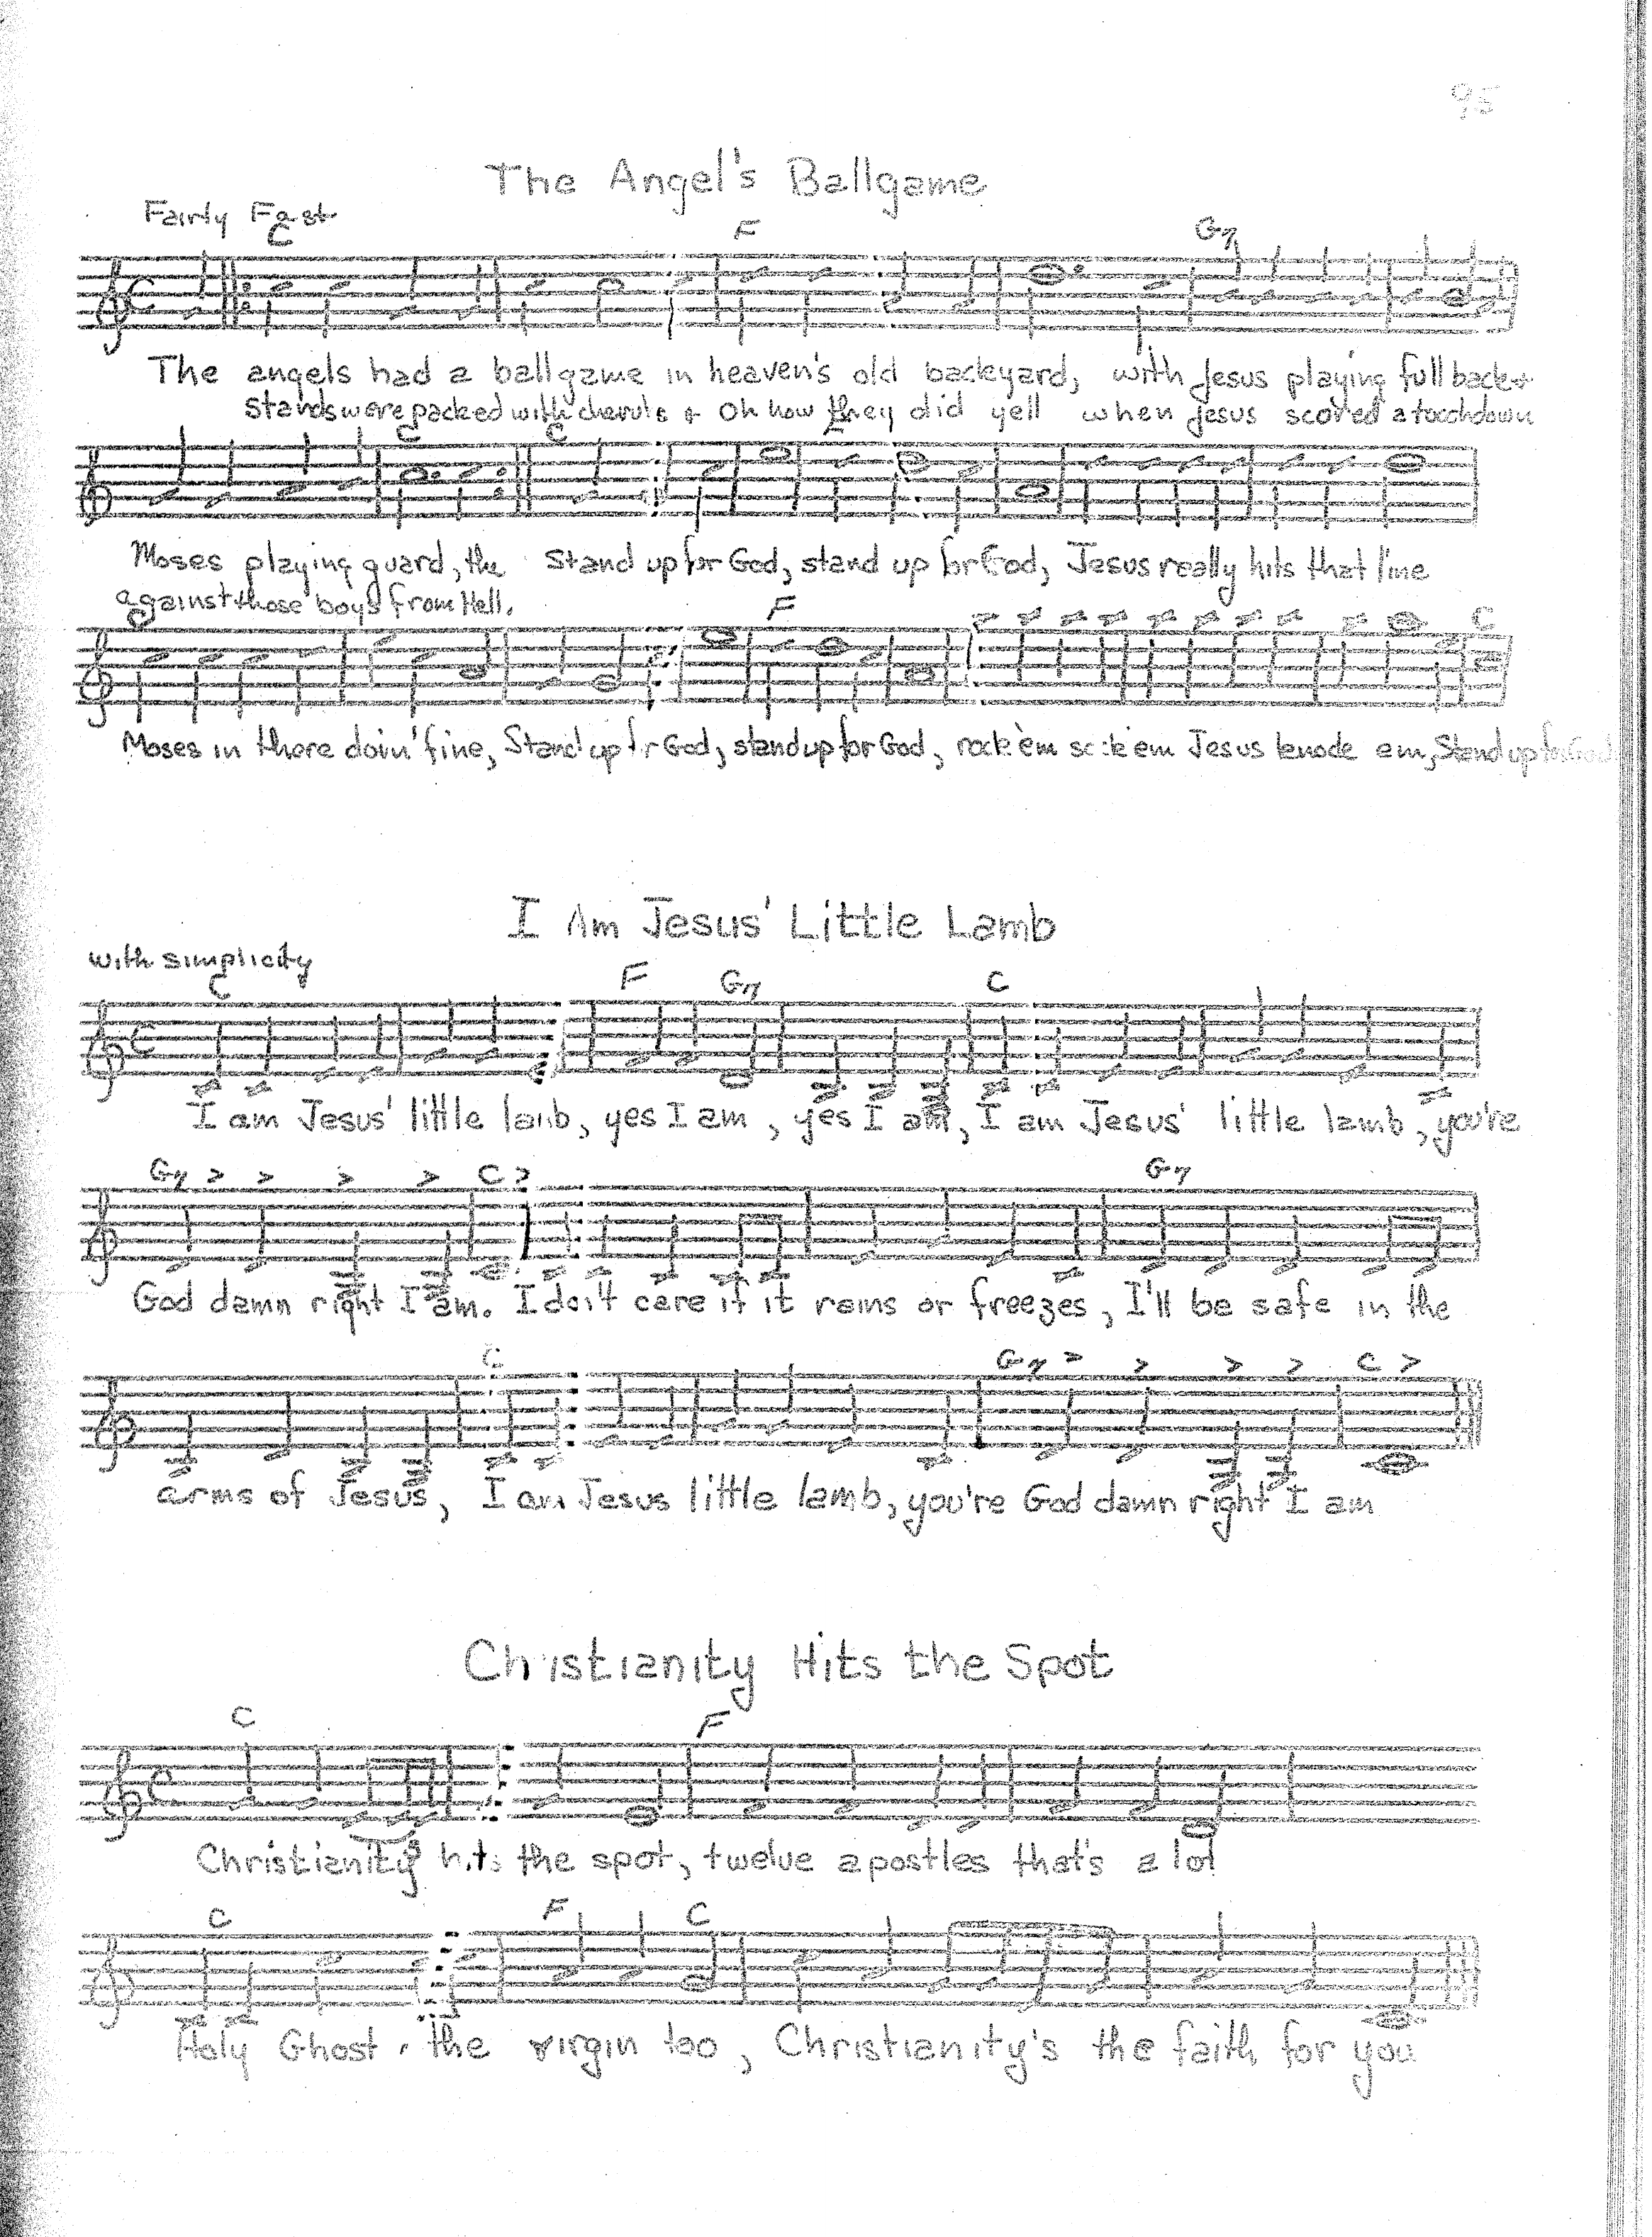 95
The Angel's Ballgame
Fairly Fast
C F G7
The angels had a ballgame in heaven's old backyard, with Jesus playing full back +
Stands were packed with cherubs + Oh how they did yell when Jesus scored a touchdown
C C
Moses playing guard, the Stand up for God, stand up for God, Jesus really hits that line
against those boys from Hell.
C F C
Moses in there doin' fine, Stand up for God, stand up for God, rock 'em sock 'em Jesus knock em, Stand up for God
I Am Jesus' Little Lamb
with simplicity
C F G7 C
I am Jesus' little lamb, yes I am, yes I am, I am Jesus' little lamb, you're
G7 C G7
God damn right I am. I don't care if it rains or freezes, I'll be safe in the
C G7 C
arms of Jesus, I am Jesus little lamb, you're God damn right I am
Christianity Hits the Spot
C F
Christianity hits the spot, twelve apostles that's a lot
C F C
Holy Ghost, the virgin too, Christianity's the faith for you